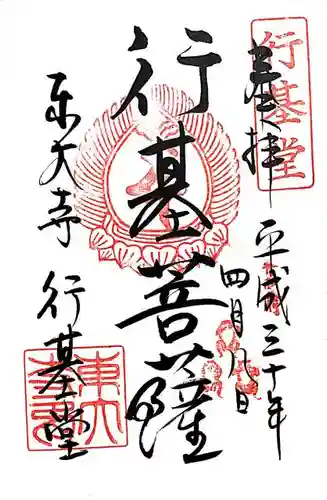 奉拝
行基堂
平成三十年
四月八日
行基菩薩
東大寺 行基堂